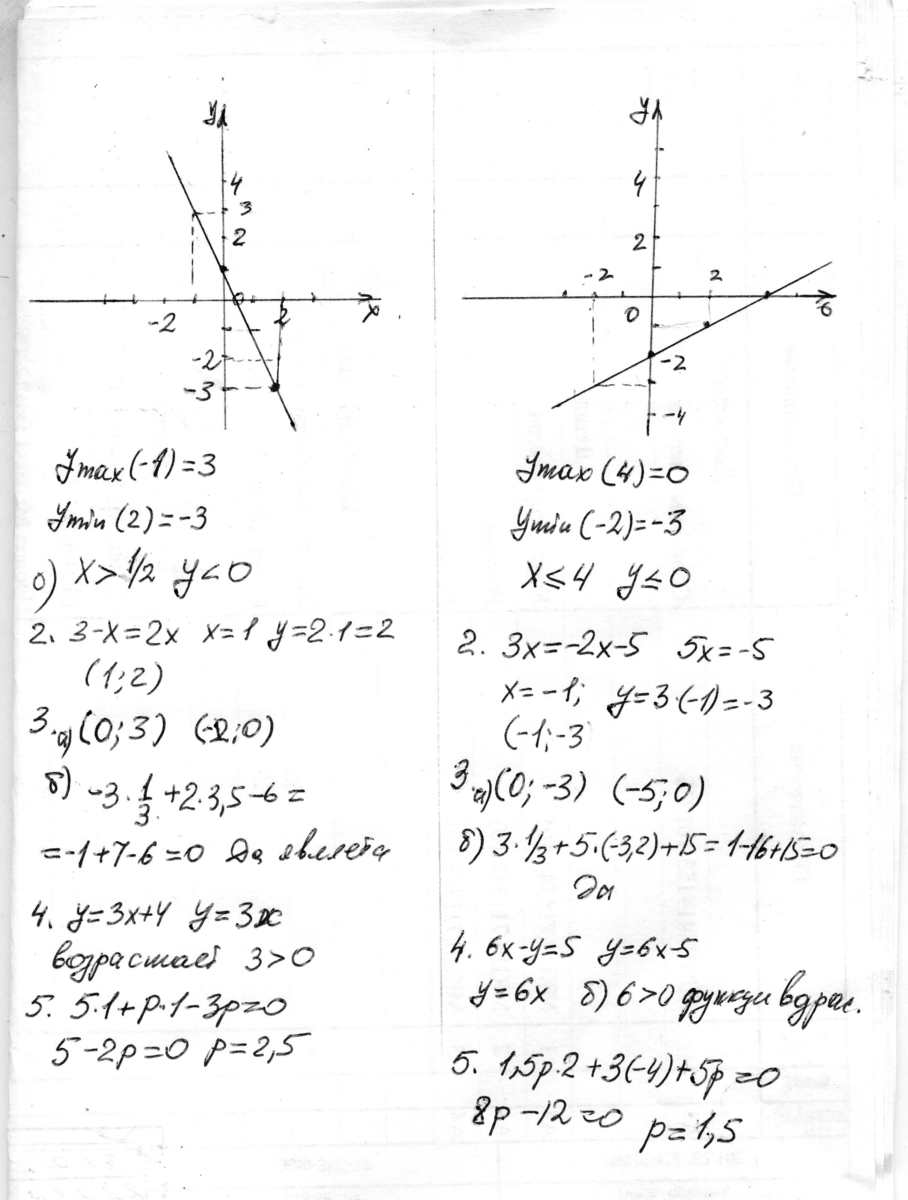 y
4
3
2
-2
0
2
x
-2
-3
y max (-1) = 3
y min (2) = -3
о) x > 1/2 y < 0
2. 3-x=2x x=1 y=2·1=2
(1; 2)
3.а) (0; 3) (-2; 0)
б) -3·1/3+2·3,5-6=
=-1+7-6=0 Да являета
4. y=3x+4 y=3x
возрастает 3>0
5. 5·1+p·1-3p=0
5-2p=0 p=2,5
y
4
2
-2
2
0
6
-2
-4
y max (4)=0
y min (-2)=-3
x ≤ 4 y ≤ 0
2. 3x=-2x-5 5x=-5
x=-1; y=3·(-1)=-3
(-1; -3
3.а) (0; -3) (-5; 0)
б) 3·1/3+5·(-3,2)+15=1-16+15=0
Да
4. 6x-y=5 y=6x-5
y=6x б) 6>0 функци вдрас.
5. 1,5p·2+3(-4)+5p=0
8p-12=0 p=1,5